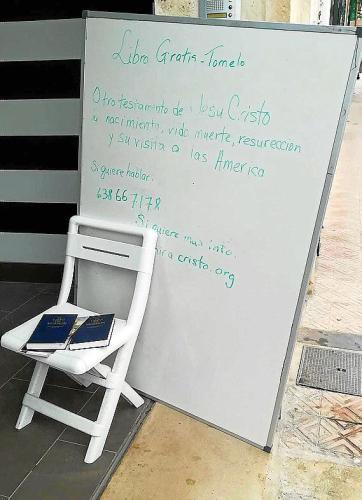 Libro Gratis - Tomelo
Otro testamento de Jesu Cristo
su nacimiento, vida muerte, resureccion
y su visita a las America
Si quiere hablar:
638667178
Si quiere mas info.
mira cristo.org